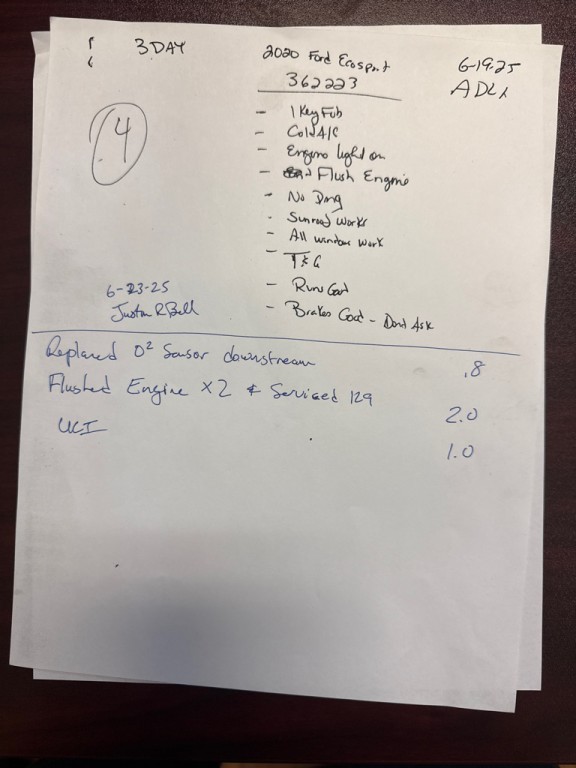 3 DAY
2020 Ford Ecosport
6-19-25
362223
4
- 1 Key Fob
- Cold A/C
- Engine light on
- Flush Engine
- No Dmg
- Sunroof works
- All window work
- T & G
- Runs Good
- Brakes Good - Dond Ask
6-23-25
Justin R Bell
Replaced O² Sensor downstream .8
Flushed Engine x2 & Serviced 129 2.0
UCI 1.0